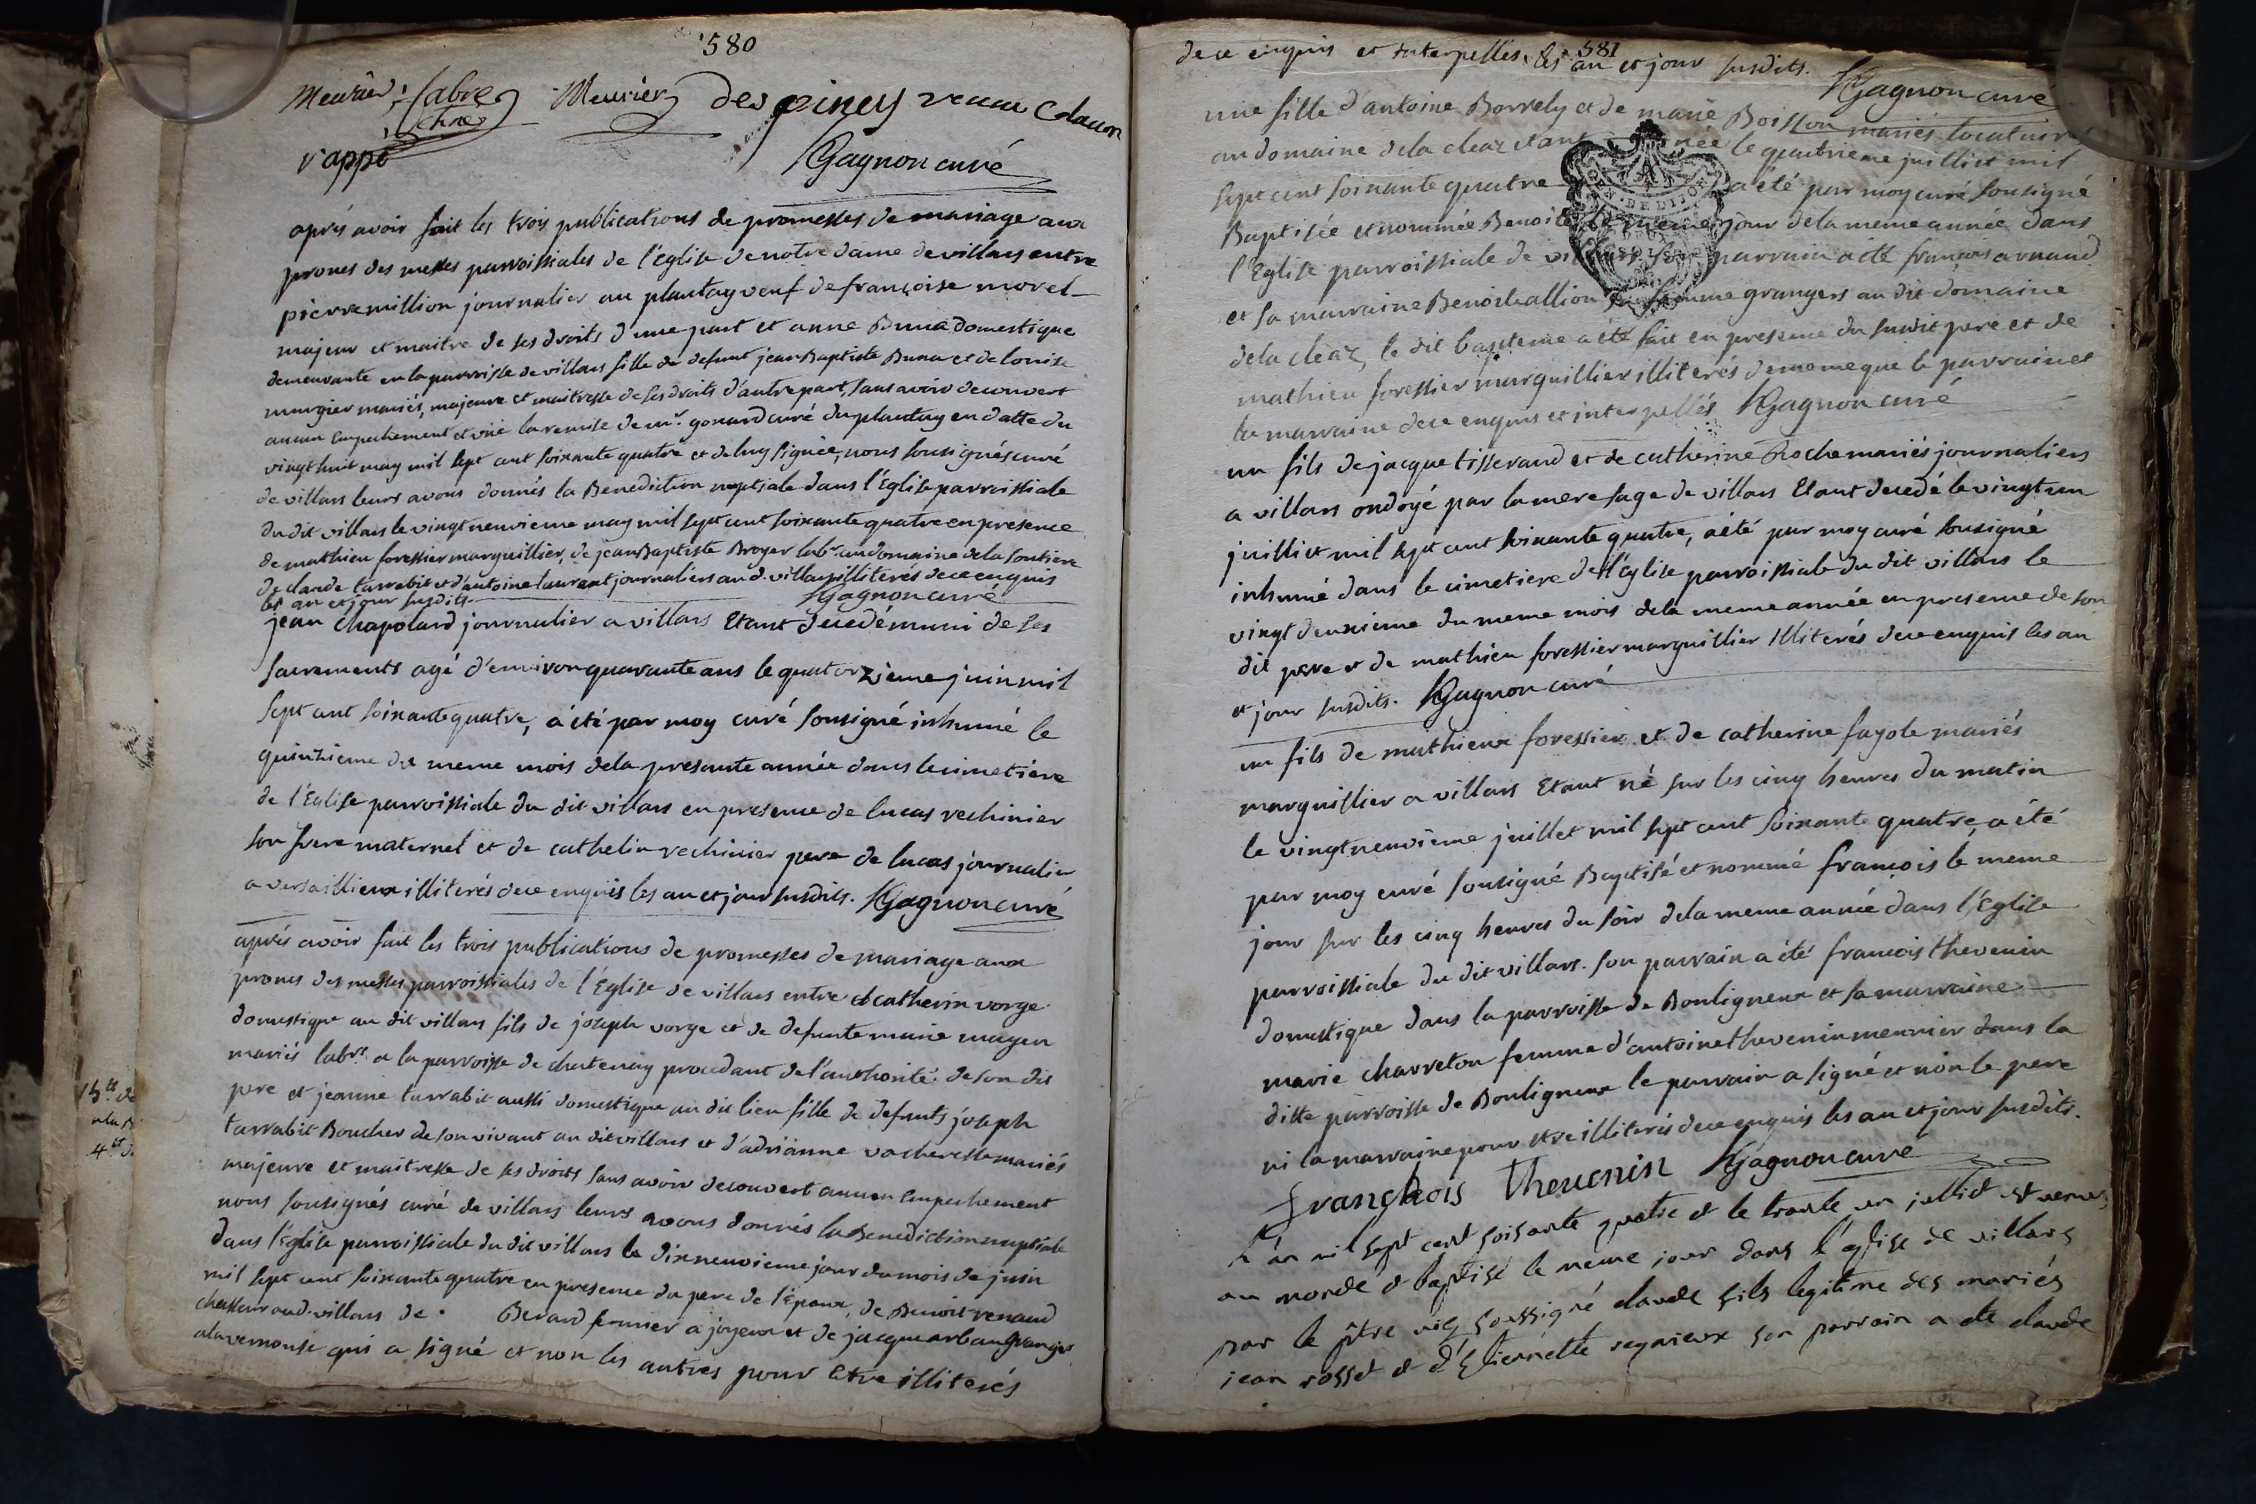 580
Meurier fabre Meurier des piney veuve Colavon
v. appé
Gagnon curé
aprés avoir fait les trois publications de promesses de mariage aux
prones des messes parroissiales de l'église de notre dame de villars entre
pierre million journalier au plantay veuf de françoise morel
majeur et maitre de ses droits d'une part et anne Buna domestique
demeurante en la parroisse de villars fille de defunt jean Baptiste Buna et de louise
murgier mariés, majeure et maitresse de ses droits d'autre part, sans avoir decouvert
aucun empechement et vûe la remise de mr. gonard curé du plantay en datte du
vingt huit may mil sept cent soixante quatre et de luy signée, nous sousignés curé
de villars leurs avons donnés la Benediction nuptiale dans l'église parroissiale
du dit villars le vingt neuvieme may mil sept cent soixante quatre en presence
de mathieu foressier marguillier, de jean Baptiste Broyer labr. au domaine de la soutiere
de claude tarrabit et d'antoine laurent journaliers au d. villars illiterés de ce enquis
les an et jour susdits. Gagnon curé
jean chapolard journalier a villars Etant decedé muni de ses
sacrements agé d'environ quarante ans le quatorzieme juin mil
sept cent soixante quatre, a été par moy curé sousigné inhumé le
quinzieme du meme mois de la presante année dans le cimetiere
de l'Eglise parroissiale du dit villars en presence de lucas vechinier
son frere maternel et de cathelin vechinier pere de lucas journalier
a versaillieux illiterés de ce enquis les an et jour susdits. Gagnon curé
aprés avoir fait les trois publications de promesses de mariage aux
prones des messes parroissiales de l'Eglise de villars entre catherin vorge
domestique au dit villars fils de joseph vorge et de defunte marie mayen
mariés labrs. a la parroisse de chatenay procedant de l'authorité de son dit
pere et jeanne tarrabit aussi domestique au dit lieu fille de defunts joseph
tarrabit Boucher de son vivant au dit villars et d'adrianne vacheresse mariés
majeure et maitresse de ses droits sans avoir decouvert aucun empechement
nous sousignés curé de villars leurs avons donnés la Benediction nuptiale
dans l'église parroissiale du dit villars le dixneuvieme jour du mois de juin
mil sept cent soixante quatre en presence du pere de l'epoux, de Benoit renaud
chasseur au d. villars de Berard fermier a joyeux et de jacque arban granger
a lavernouse qui a signé et non les autres pour etre illiterés
581
de ce enquis et interpellés les an et jour susdits. Gagnon curé
une fille d'antoine Borrely et de marie Boisson mariés locataires
au domaine de la cleaz etant née le quatrieme juillict mil
sept cent soixante quatre a été par moy curé sousigné
Baptisée et nommée Benoite le meme jour de la meme année dans
l'Eglise parroissiale de villars son parrain a été francois arnaud
et sa marraine Benoiste allion sa femme grangers au dit domaine
de la cleaz, le dit bapteme a été fait en presence du susdit pere et de
mathieu foressier marguillier illiterés de meme que le parrain et
la marraine de ce enquis et interpellés Gagnon curé
un fils de jacque tisserand et de catherine Roche mariés journaliers
a villars ondoyé par la mere sage de villars Etant decedé le vingt un
juillict mil sept cent soixante quatre, a été par moy curé sousigné
inhumé dans le cimetiere de l'église parroissiale du dit villars le
vingt deuxieme du meme mois de la meme année en presence de son
dit pere et de mathieu foressier marguillier illiterés de ce enquis les an
et jour susdits. Gagnon curé
un fils de mathieux foressier et de catherine fayole mariés
marguillier a villars Etant né sur les cinq heures du matin
le vingt neuvieme juillet mil sept cent soixante quatre, a été
par moy curé sousigné Baptisé et nommé francois le meme
jour sur les cinq heures du soir de la meme année dans l'Eglise
parroissiale du dit villars. son parrain a été francois thevenin
domestique dans la parroisse de Bouligneux et sa marraine
marie charreton femme d'antoine thevenin meunier dans la
ditte parroisse de Bouligneux le parrain a signé et non le pere
ni la marraine pour etre illiterés de ce enquis les an et jour susdits.
franchois Theuenin Gagnon curé
L'an mil sept cent soisante quatre et le trante un jullict est venus
au monde et baptisé le meme jour dans l'eglise de villars
par le pstre vic soussigné claude fils legitime des mariés
jean rosset et d'Etiennette reynieux son parrain a eté claude